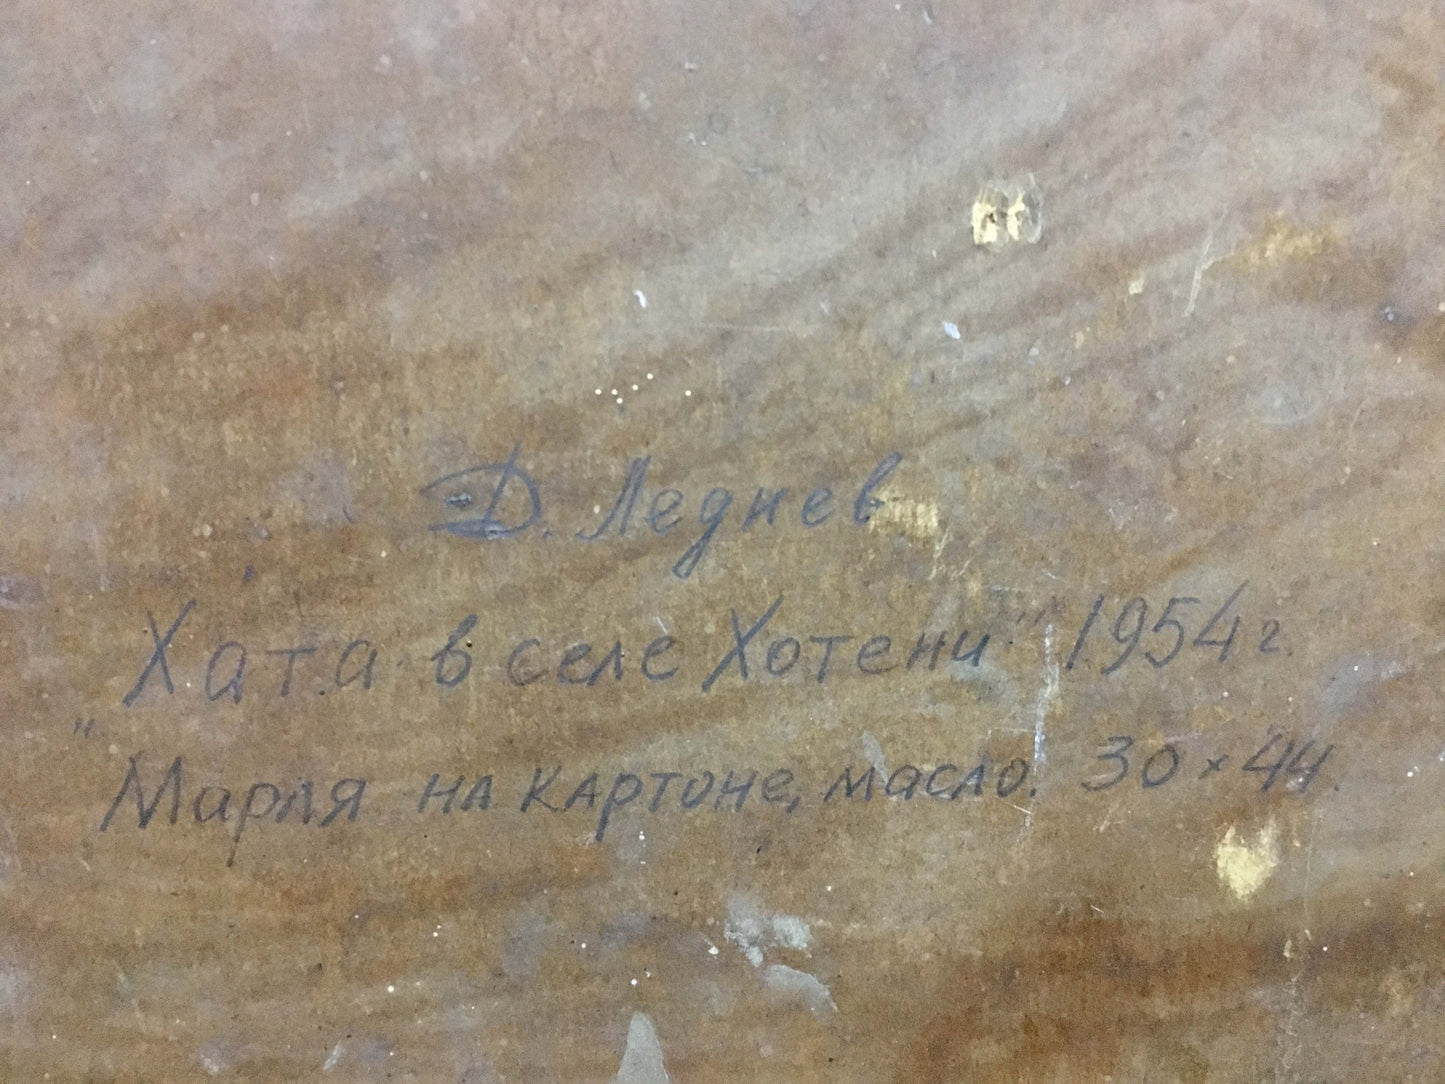 Д. Леднев
"Хата в селе Хотени" 1954 г.
Марля на картоне, масло. 30 × 44.